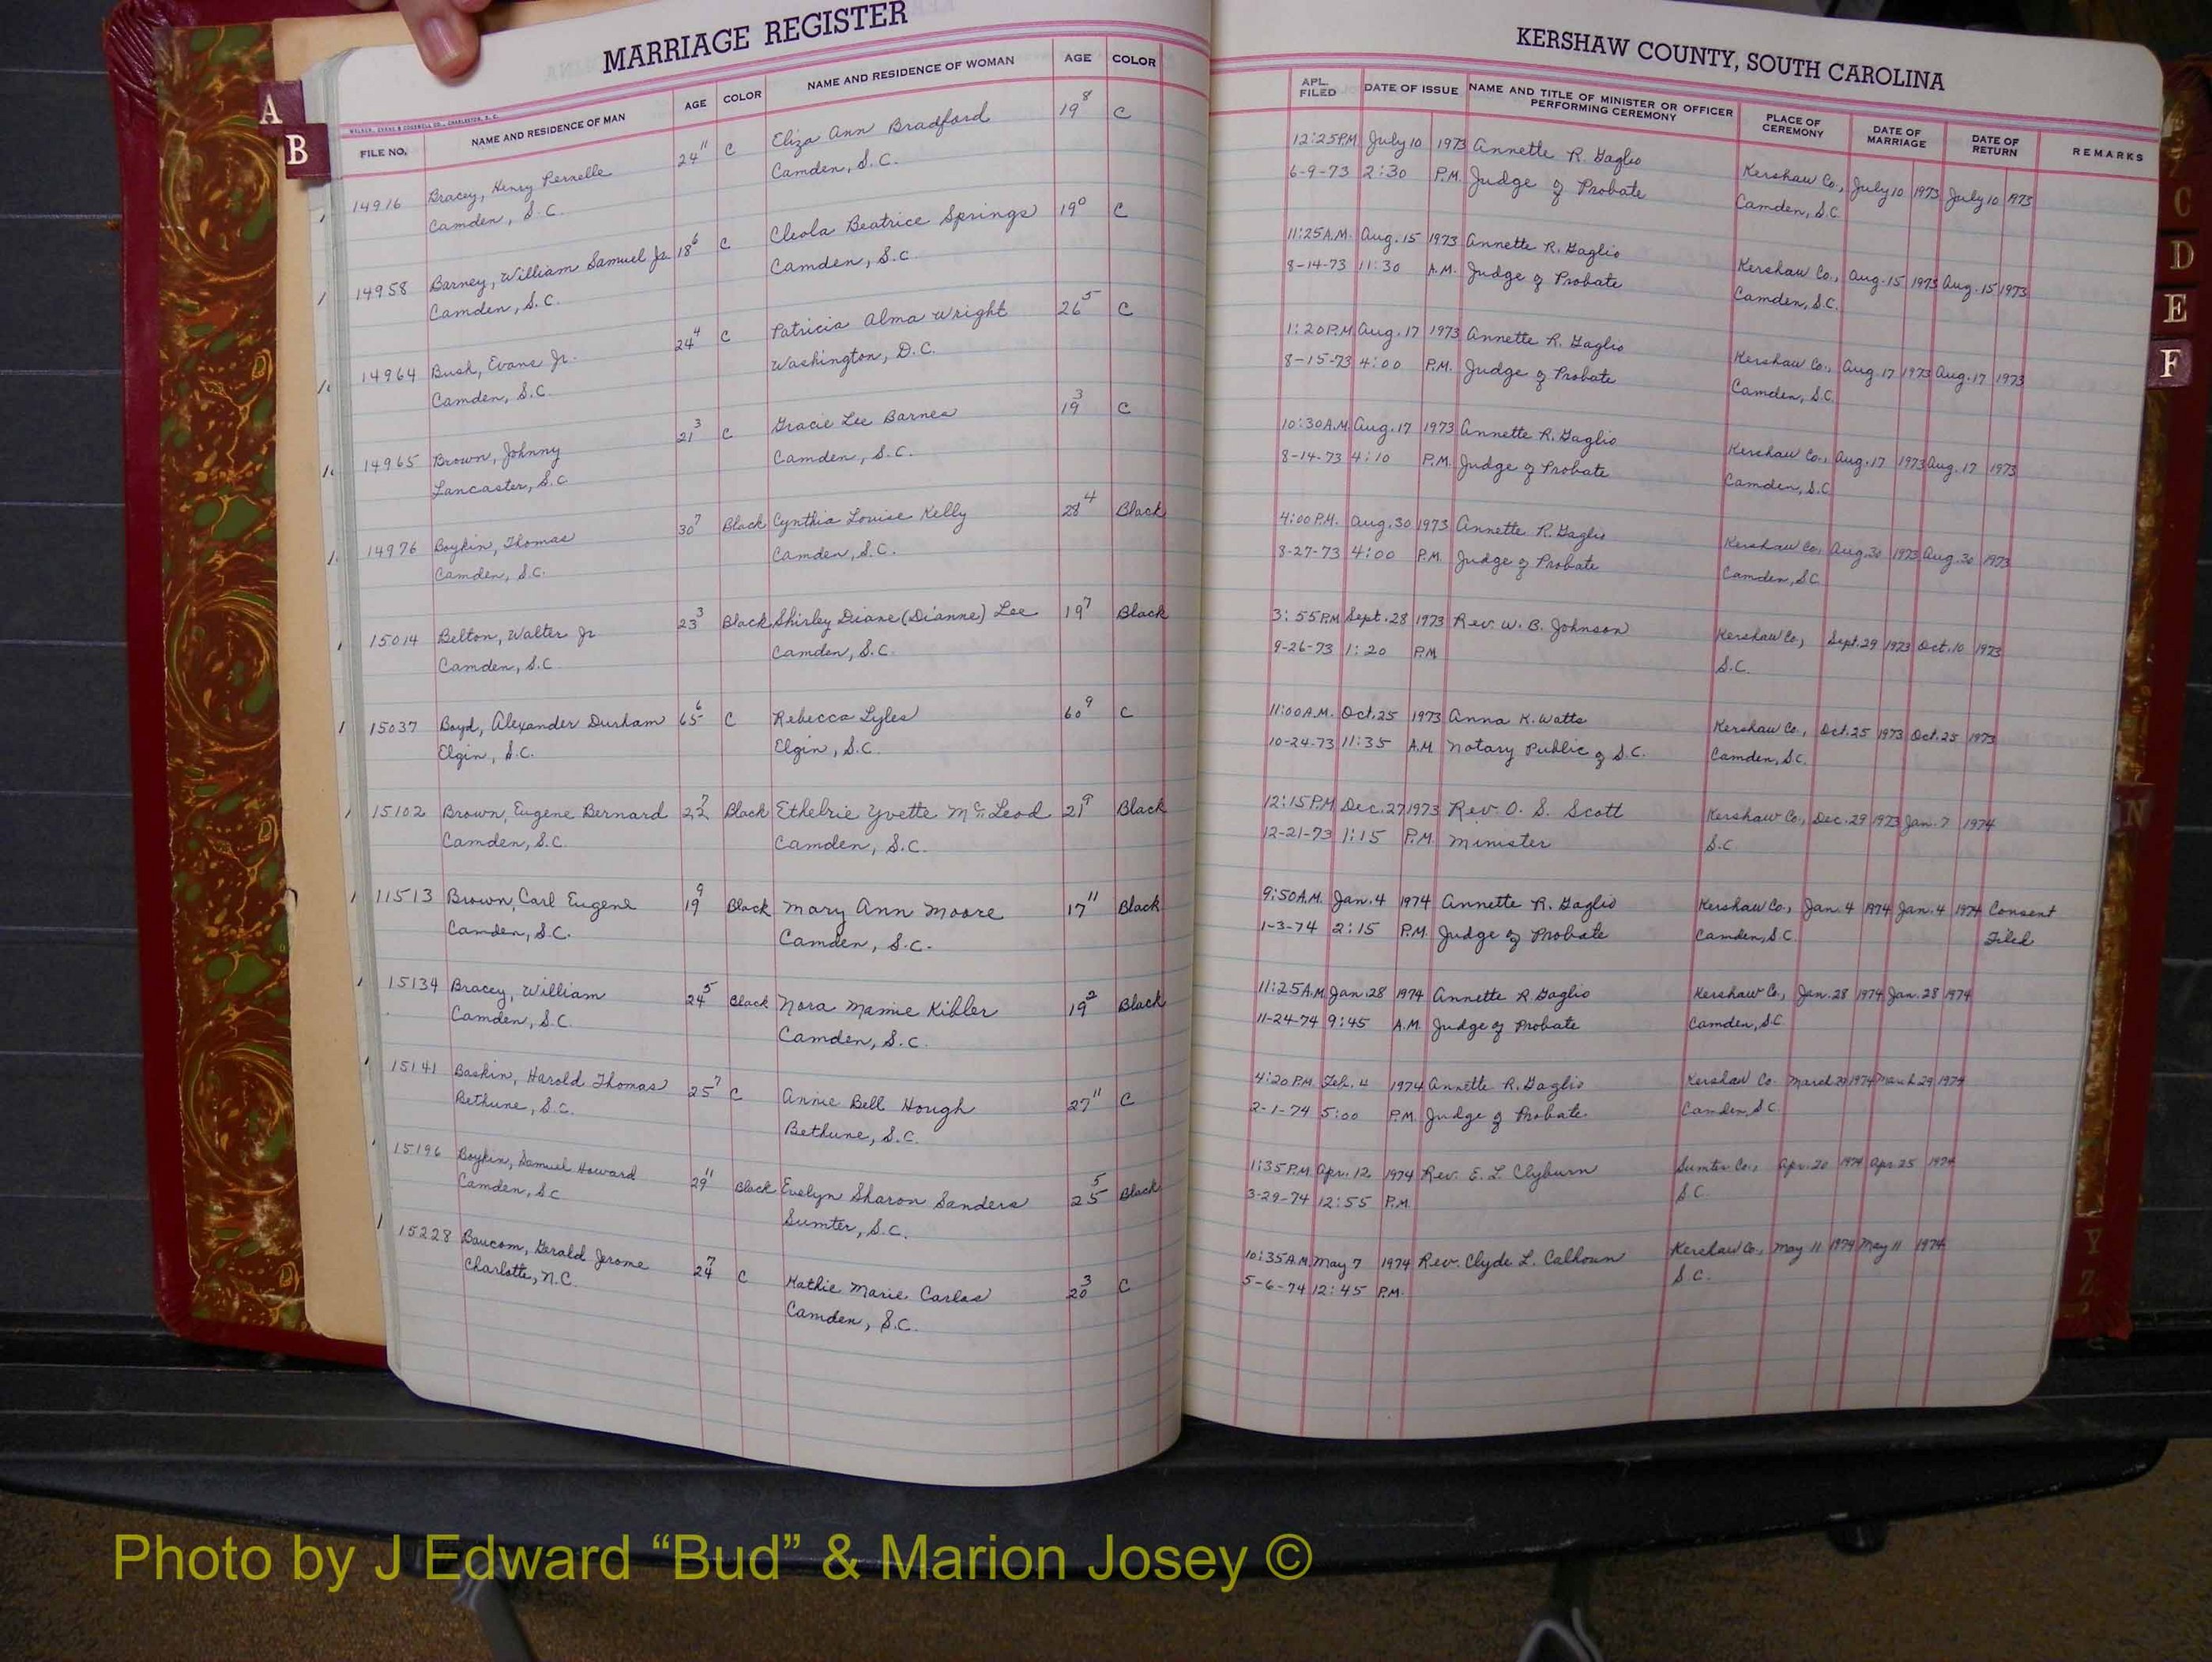 MARRIAGE REGISTER
KERSHAW COUNTY, SOUTH CAROLINA
A
B
C
D
E
F
N
Y
Z
WALKER, EVANS & COGSWELL CO., CHARLESTON, S. C.
FILE NO. NAME AND RESIDENCE OF MAN AGE COLOR NAME AND RESIDENCE OF WOMAN AGE COLOR APL. FILED DATE OF ISSUE NAME AND TITLE OF MINISTER OR OFFICER PERFORMING CEREMONY PLACE OF CEREMONY DATE OF MARRIAGE DATE OF RETURN REMARKS
14916 Bracey, Henry Pernelle 24 11 C Eliza Ann Bradford 19 8 C 12:25P.M. July 10 1973 Annette R. Gaglio Kershaw Co., July 10 1973 July 10 1973
Camden, S.C. Camden, S.C. 6-9-73 2:30 P.M. Judge of Probate Camden, S.C.
14958 Barney, William Samuel Jr. 18 6 C Cleola Beatrice Springs 19 0 C 11:25A.M. Aug. 15 1973 Annette R. Gaglio Kershaw Co., Aug. 15 1973 Aug. 15 1973
Camden, S.C. Camden, S.C. 8-14-73 11:30 A.M. Judge of Probate Camden, S.C.
14964 Bush, Evans Jr. 24 4 C Patricia Alma Wright 26 5 C 1:20P.M. Aug. 17 1973 Annette R. Gaglio Kershaw Co., Aug. 17 1973 Aug. 17 1973
Camden, S.C. Washington, D.C. 8-15-73 4:00 P.M. Judge of Probate Camden, S.C.
14965 Brown, Johnny 21 3 C Gracie Lee Barnes 19 3 C 10:30A.M. Aug. 17 1973 Annette R. Gaglio Kershaw Co., Aug. 17 1973 Aug. 17 1973
Lancaster, S.C. Camden, S.C. 8-14-73 4:10 P.M. Judge of Probate Camden, S.C.
14976 Boykin, Thomas 30 7 Black Cynthia Louise Kelly 28 4 Black 4:00P.M. Aug. 30 1973 Annette R. Gaglio Kershaw Co., Aug. 30 1973 Aug. 30 1973
Camden, S.C. Camden, S.C. 8-27-73 4:00 P.M. Judge of Probate Camden, S.C.
15014 Belton, Walter Jr. 23 3 Black Shirley Diane (Dianne) Lee 19 7 Black 3:55P.M. Sept. 28 1973 Rev. W. B. Johnson Kershaw Co., Sept. 29 1973 Oct. 10 1973
Camden, S.C. Camden, S.C. 9-26-73 1:20 P.M. S.C.
15037 Boyd, Alexander Durham 65 6 C Rebecca Lyles 60 9 C 11:00A.M. Oct. 25 1973 Anna K. Watts Kershaw Co., Oct. 25 1973 Oct. 25 1973
Elgin, S.C. Elgin, S.C. 10-24-73 11:35 A.M. Notary Public of S.C. Camden, S.C.
15102 Brown, Eugene Bernard 22 7 Black Ethelrie Yvette McLeod 21 9 Black 12:15P.M. Dec. 27 1973 Rev. O. S. Scott Kershaw Co., Dec. 29 1973 Jan. 7 1974
Camden, S.C. Camden, S.C. 12-21-73 1:15 P.M. Minister S.C.
11513 Brown, Carl Eugene 19 9 Black Mary Ann Moore 17 11 Black 9:50A.M. Jan. 4 1974 Annette R. Gaglio Kershaw Co., Jan. 4 1974 Jan. 4 1974 Consent
Camden, S.C. Camden, S.C. 1-3-74 2:15 P.M. Judge of Probate Camden, S.C. Filed
15134 Bracey, William 24 5 Black Nora Mamie Kibler 19 2 Black 11:25A.M. Jan. 28 1974 Annette R. Gaglio Kershaw Co., Jan. 28 1974 Jan. 28 1974
Camden, S.C. Camden, S.C. 11-24-74 9:45 A.M. Judge of Probate Camden, S.C.
15141 Baskin, Harold Thomas 25 7 C Annie Bell Hough 27 11 C 4:20P.M. Feb. 4 1974 Annette R. Gaglio Kershaw Co. March 1974 March 29 1974
Bethune, S.C. Bethune, S.C. 2-1-74 5:00 P.M. Judge of Probate Camden, S.C.
15196 Boykin, Samuel Howard 29 11 Black Evelyn Sharon Sanders 25 5 Black 1:35P.M. Apr. 12 1974 Rev. E. L. Clyburn Sumter Co., Apr. 20 1974 Apr. 25 1974
Camden, S.C. Sumter, S.C. 3-29-74 12:55 P.M. S.C.
15228 Baucom, Gerald Jerome 24 7 C Kathie Marie Carlos 20 3 C 10:35A.M. May 7 1974 Rev. Clyde L. Calhoun Kershaw Co., May 11 1974 May 11 1974
Charlotte, N.C. Camden, S.C. 5-6-74 12:45 P.M. S.C.
Photo by J Edward “Bud” & Marion Josey ©